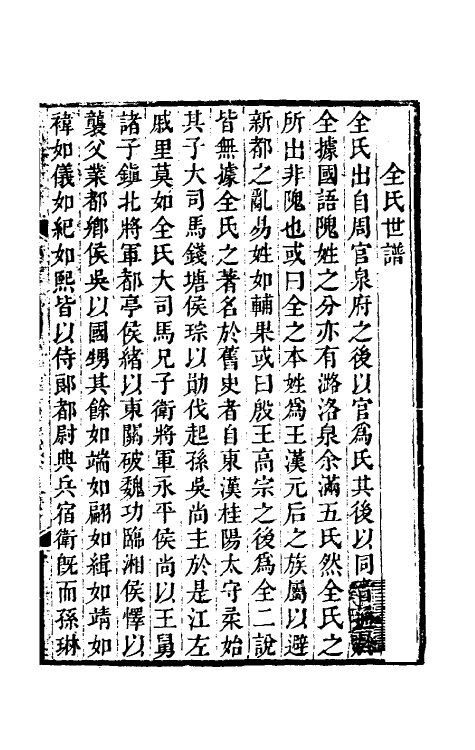 全氏世譜
全氏出自周官泉府之後以官爲氏其後以同音
全據國語隗姓之分亦有潞洛泉余滿五氏然全氏之
所出非隗也或曰全之本姓爲王漢元后之族屬以避
新都之亂易姓如輔果或曰殷王高宗之後爲全二說
皆無據全氏之著名於舊史者自東漢桂陽太守柔始
其子大司馬錢塘侯琮以勛伐起孫吳尚主於是江左
戚里莫如全氏大司馬兄子衛將軍永平侯尚以王舅
諸子鎭北將軍都亭侯緒以東關破魏功臨湘侯懌以
襲父業都鄉侯吳以國甥其餘如端如翩如緝如靖如
禕如儀如紀如熙皆以侍郞都尉典兵宿衛旣而孫琳